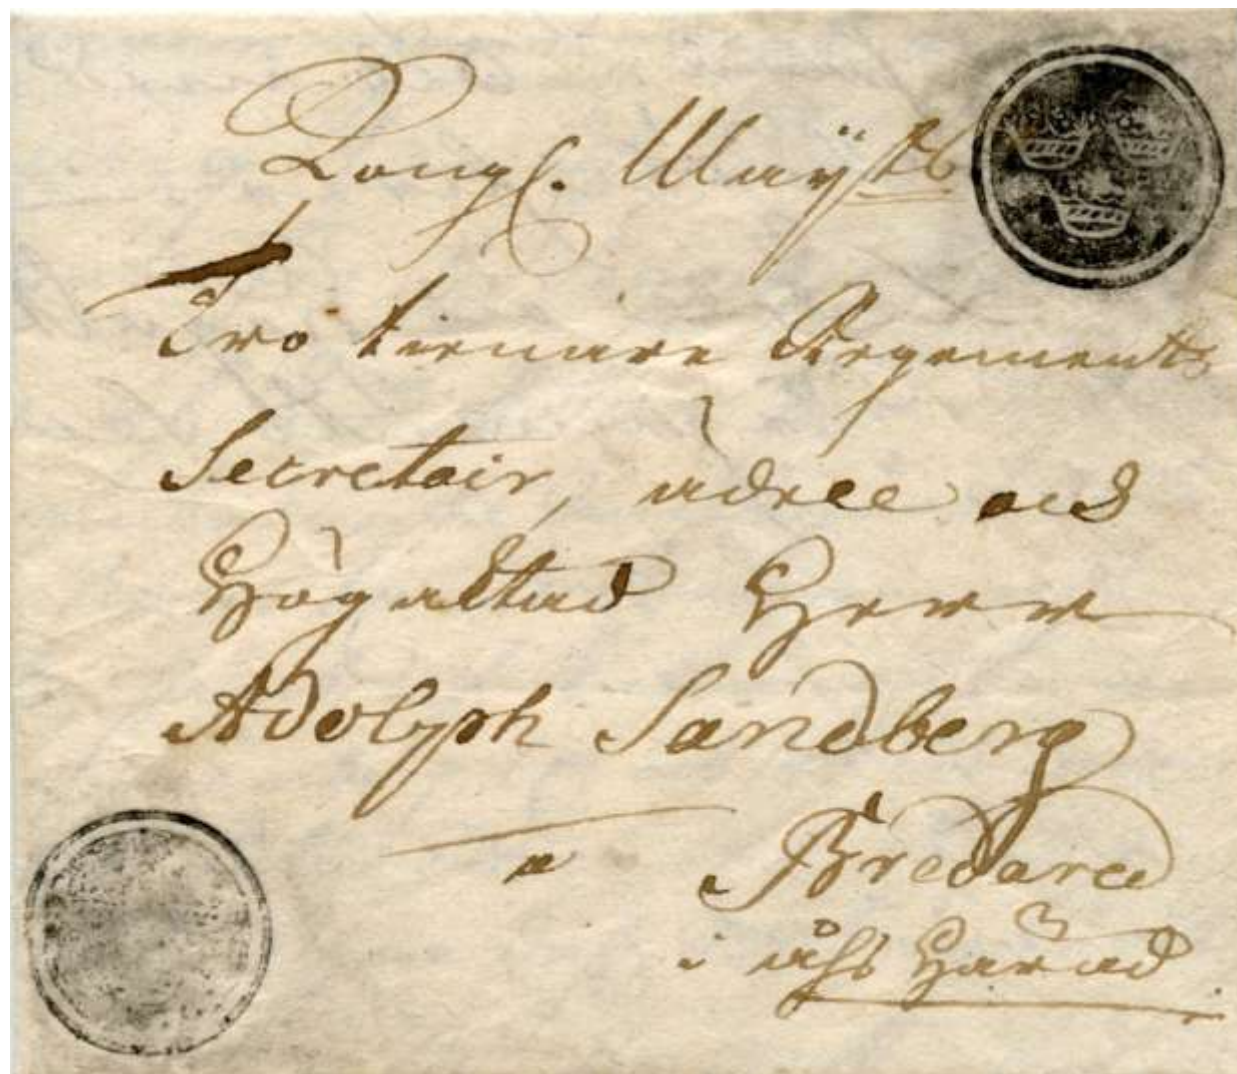 Kongl. Maÿtts
Tro tienare Regements
Secretair, ädle och
Högaktad Herr
Adolph Sandberg
Bredared
i åhs Härad